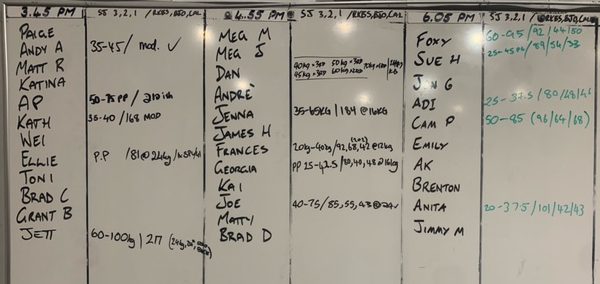 3.45 PM
SJ 3,2,1 / RKBS, BJO, CAL
PAIGE
ANDY A 35-45 / mod. ✓
MATT R
KATINA
AP 50-75 PP /
KATH 35-40 / 168 MOD
WEI
ELLIE P.P / 81 @ 24kg /
TONI
BRAD C
GRANT B
JETT 60-100kg /
4.55 PM
SJ 3,2,1 / RKBS, BJO, CAL
MEG M
MEG J
DAN
ANDRÉ
JENNA 35-65KG / 184 @ 16KG
JAMES H
FRANCES 20kg-40kg / 92, 68, 42 @ 12kg
GEORGIA PP 25-42.5 / 40, 48 @ 16kg
KAI
JOE 40-75 / 85, 55, 43 @
MATTY
BRAD D
6.05 PM
SJ 3,2,1 / RKBS, BJO, CAL
FOXY 60-95 / 92 / 44 / 50
SUE H 25-45 / 89 / 56 / 53
JEN G
ADI 25-37.5 / 80 / 48 /
CAM P 50-85 (96/64/68)
EMILY
AK
BRENTON
ANITA 20-37.5 / 101 / 42 / 43
JIMMY M